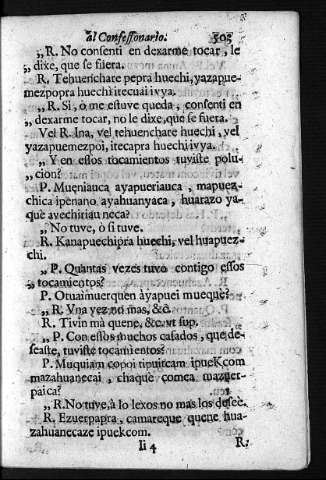 al Confessonario. 503
„R. No consenti en dexarme tocar, le
„ dixe, que se fuera.
R. Tehuenchate pepra huechi, yazapue-
mezpopra huechi itecuai ivya.
„R. Si, ò me estuve queda, consenti en
„ dexarme tocar, no le dixe, que se fuera.
Vel R. Ina, vel tehuenchate huechi, vel
yazapuemezpoi, itecapra huechi ivya.
„ Y en essos tocamientos tuviste polu-
„ cion?
P. Muqniauca ayapueriauca, mapuez-
chica ipenano ayahuanyaca, huarazo ya-
què avechiriau neca?
„ No tuve, ò si tuve.
R. Kanapuechipra huechi, vel huapuez-
chi.
„P. Quantas vezes tuvo contigo essos
„ tocamientos?
P. Otuaimuerquen àyapuei mueque?
„ R. Vna vez no mas, &c.
R. Tivin mà quene, &c. vt sup.
„ P. Con essos muchos casados, que de-
seaste, tuviste tocamientos?
P. Muquiam copoi tipuitcam ipueKcom
mazahuanecai, chaque comea mazuer-
paica?
„ R. No tuve, à lo lexos no mas los desee.
R. Ezuerpapra, camareque quene hua-
zahuanecaze ipueKcom.
Ii 4 R.